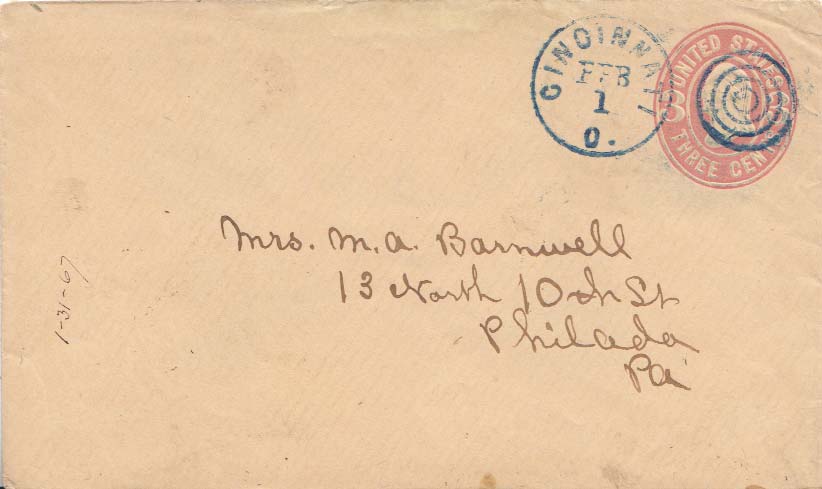 CINCINNATI
FEB
1
O.
UNITED STATES
THREE CENTS
Mrs. M. A. Barnwell
13 North 10th St
Philada
Pa
1-31-67